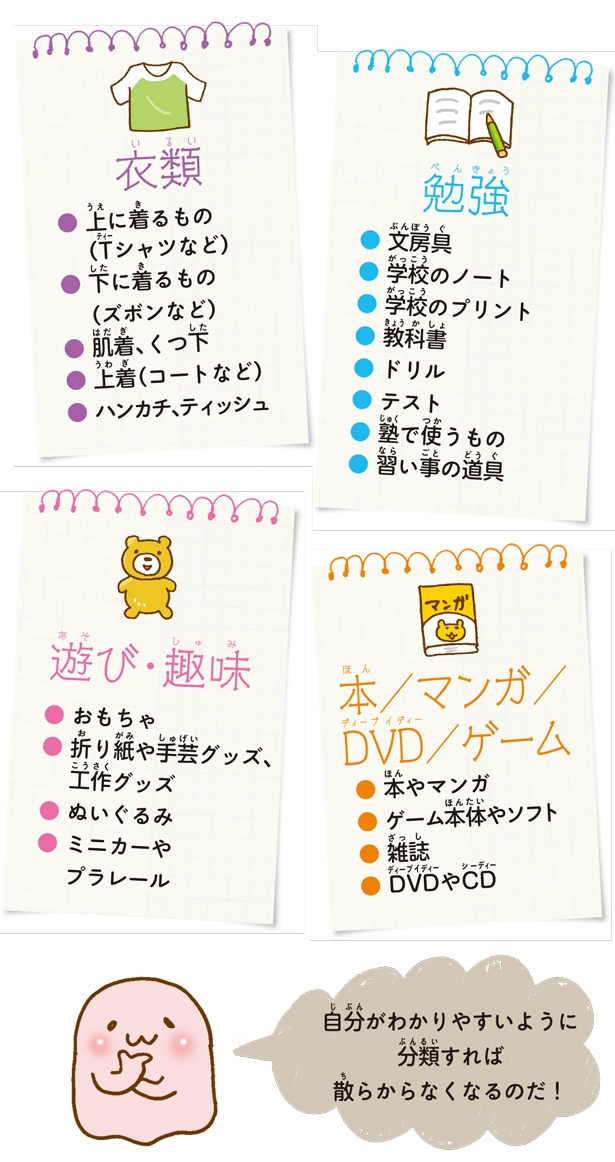 衣類
上に着るもの
(Tシャツなど)
下に着るもの
(ズボンなど)
肌着、くつ下
上着(コートなど)
ハンカチ、ティッシュ
勉強
文房具
学校のノート
学校のプリント
教科書
ドリル
テスト
塾で使うもの
習い事の道具
遊び・趣味
おもちゃ
折り紙や手芸グッズ、
工作グッズ
ぬいぐるみ
ミニカーや
プラレール
マンガ
本／マンガ／
DVD／ゲーム
本やマンガ
ゲーム本体やソフト
雑誌
DVDやCD
自分がわかりやすいように
分類すれば
散らからなくなるのだ！